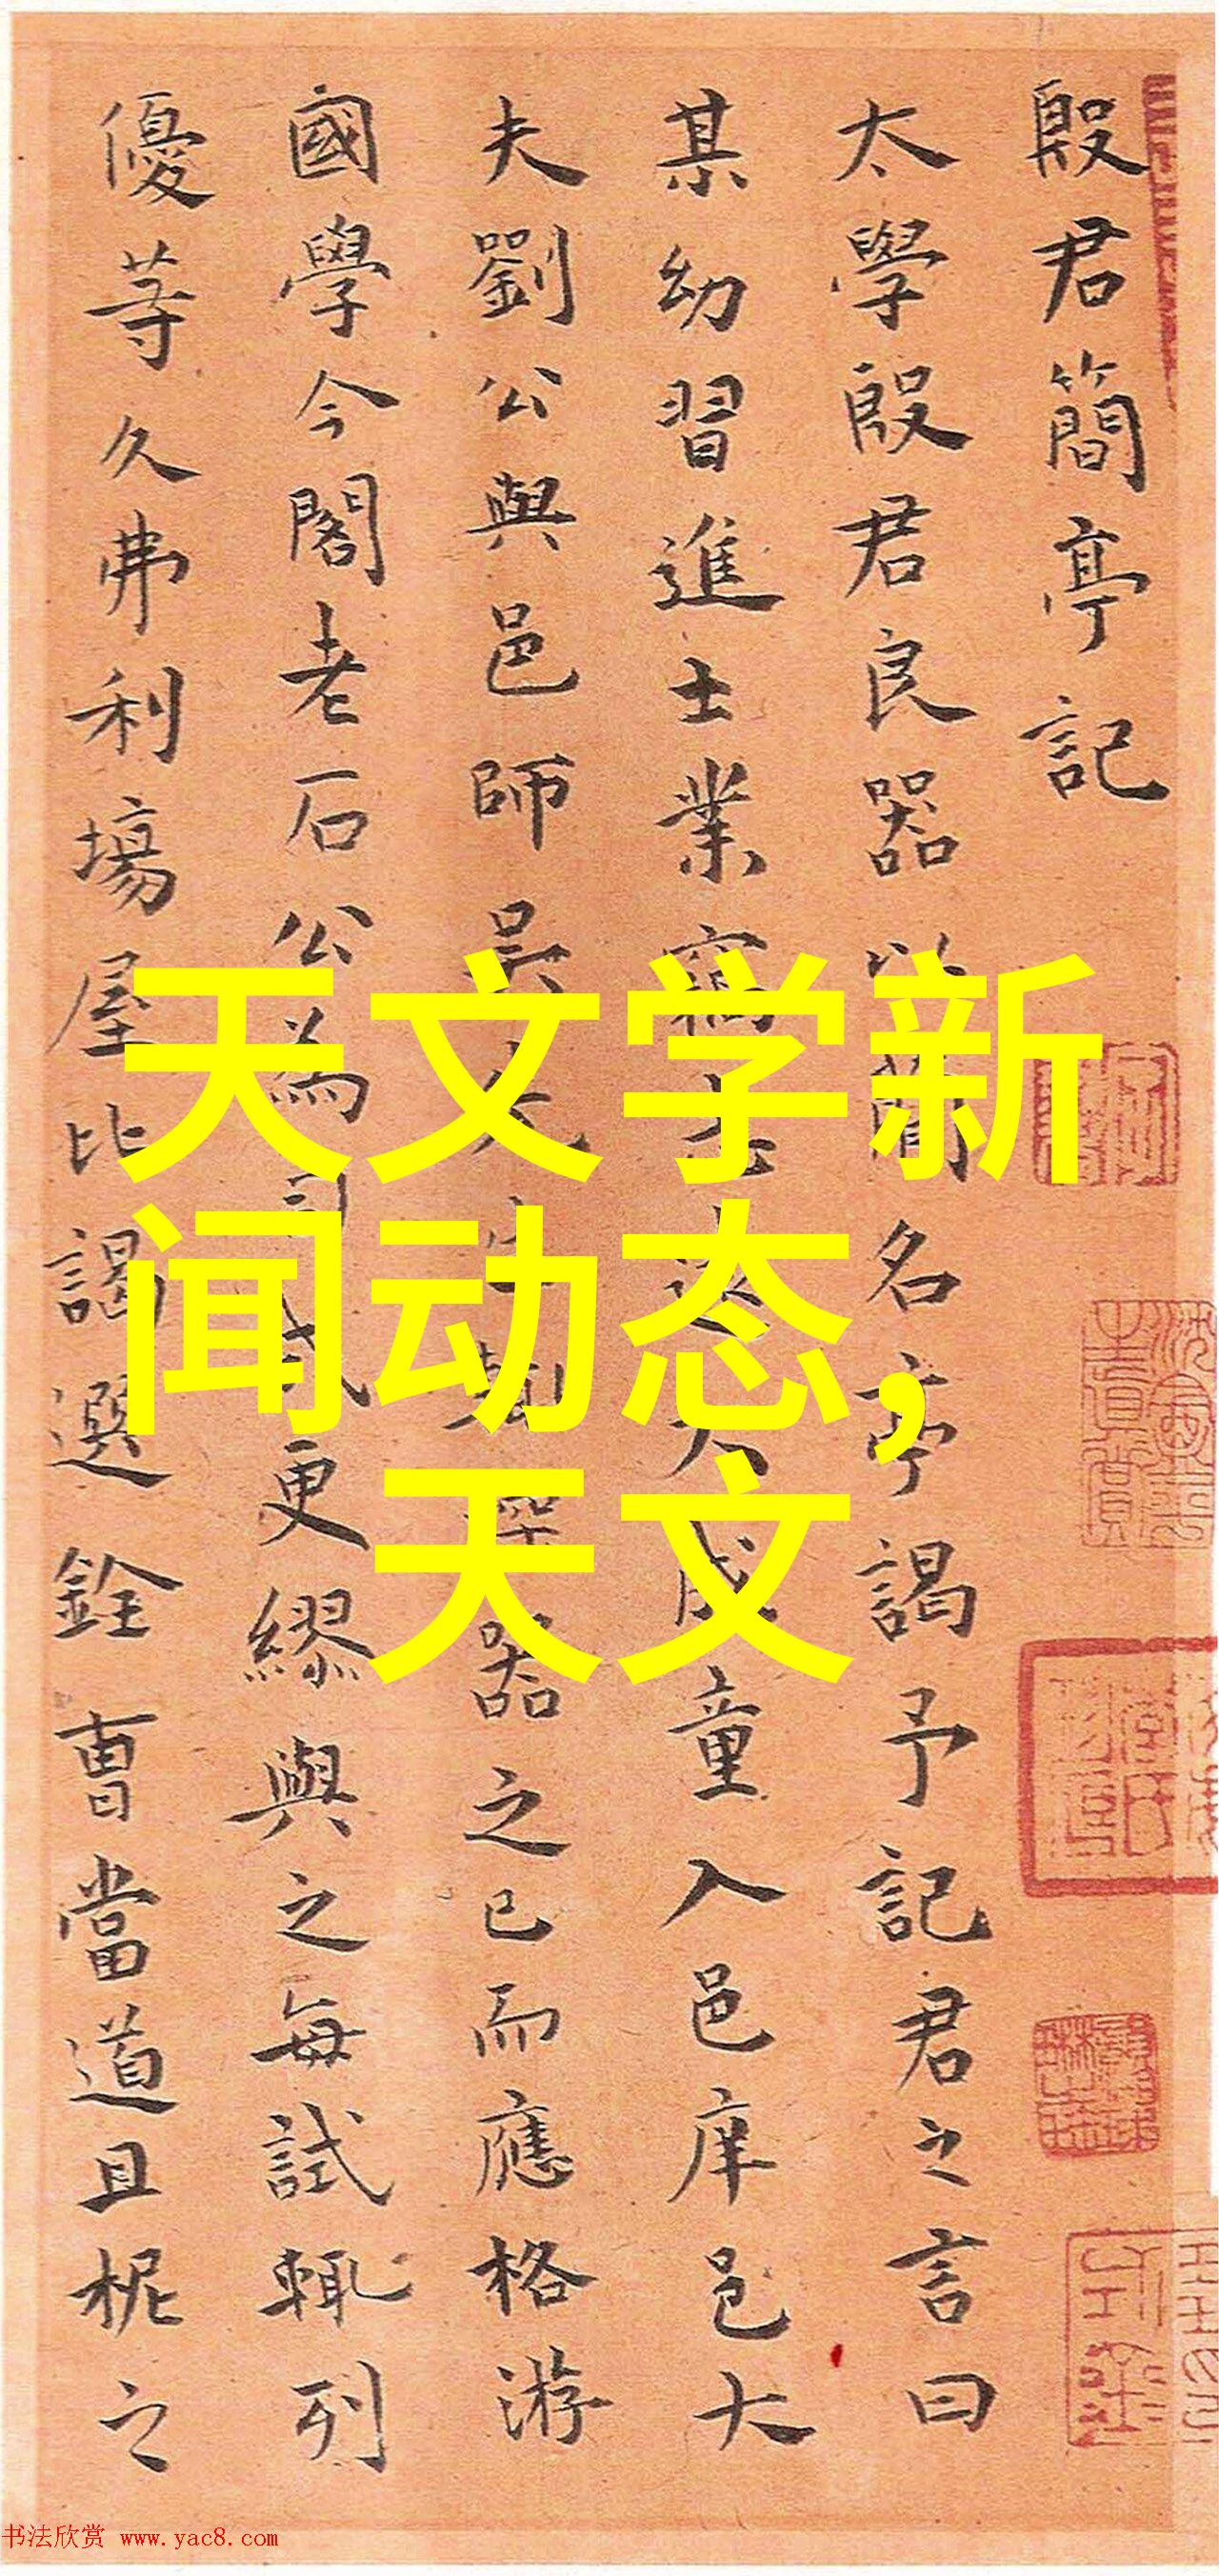 殷君簡亭記
太學殷君良器以簡名亭謁予記君之言曰
某幼習進士業成童入邑庠邑大
夫劉公與邑師吳器之已而應格游
國學今閣老石公為司成更繆與之每試輒列
優等久弗利場屋比謁選銓曹當道且柅之
天文学新
闻动态,
天文
书法欣赏 www.yac8.com